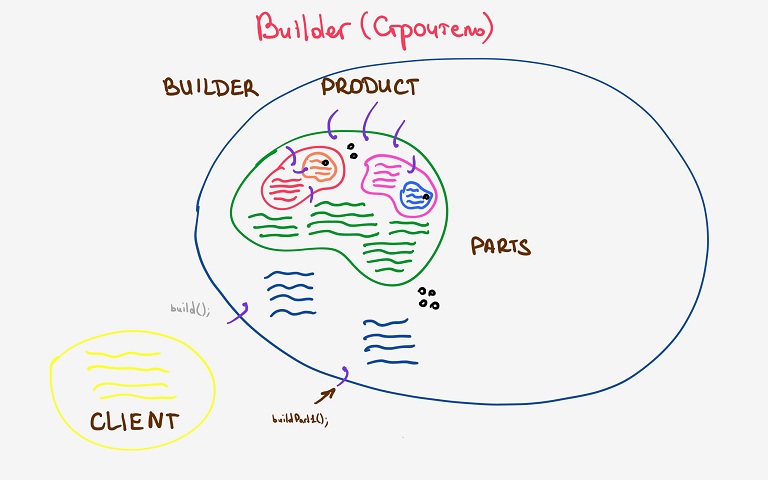 Builder (Строитель)
BUILDER PRODUCT
PARTS
build();
CLIENT
buildPart1();